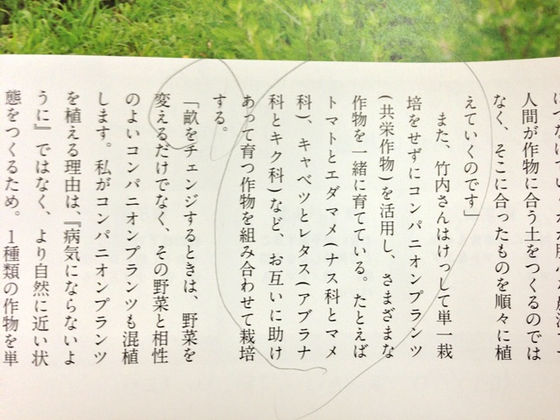 人間が作物に合う土をつくるのでは
なく、そこに合ったものを順々に植
えていくのです」
また、竹内さんはけっして単一栽
培をせずにコンパニオンプランツ
(共栄作物)を活用し、さまざまな
作物を一緒に育てている。たとえば
トマトとエダマメ(ナス科とマメ
科)、キャベツとレタス(アブラナ
科とキク科)など、お互いに助け
あって育つ作物を組み合わせて栽培
する。
「畝をチェンジするときは、野菜を
変えるだけでなく、その野菜と相性
のよいコンパニオンプランツも混植
します。私がコンパニオンプランツ
を植える理由は、『病気にならないよ
うに』ではなく、より自然に近い状
態をつくるため。1種類の作物を単